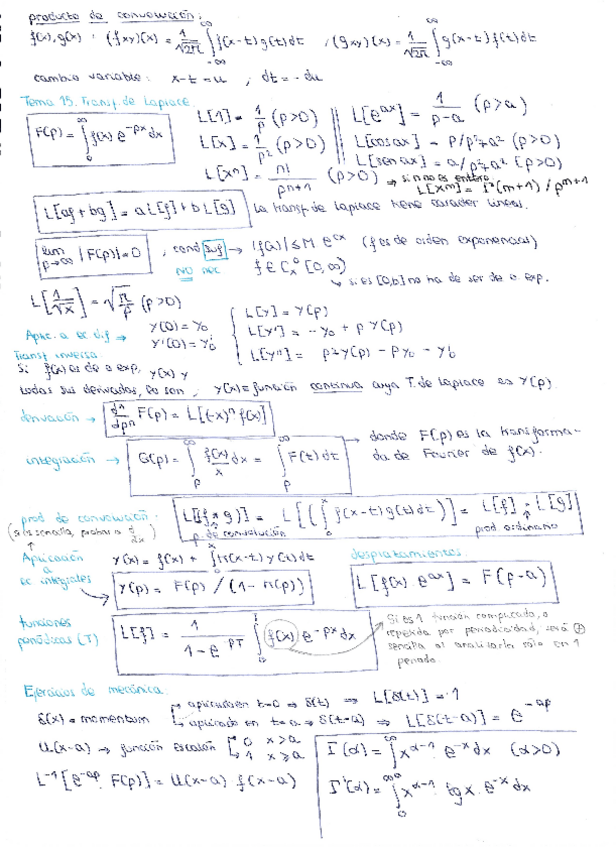 producto de convolución:
f(x), g(x) : (f*g)(x) = 1/√2π ∫_{-∞}^{∞} f(x-t) g(t) dt , (g*f)(x) = 1/√2π ∫_{-∞}^{∞} g(x-t) f(t) dt
cambio variable: x-t = u ; dt = -du
Tema 15. Transf. de Laplace.
F(p) = ∫_0^∞ f(x) e^{-px} dx
L[1] = 1/p (p>0)
L[x] = 1/p² (p>0)
L[xⁿ] = n!/p^{n+1} (p>0) → si no es entero L[x^m] = Γ(m+1) / p^{m+1}
L[e^{ax}] = 1/(p-a) (p>a)
L[cos ax] = p/p²+a² (p>0)
L[sen ax] = a/p²+a² (p>0)
L[af + bg] = a L[f] + b L[g] La transf. de Laplace tiene carácter lineal.
lim_{p→∞} |F(p)| = 0 , cond suf → |f(x)| ≤ M e^{ax} (f es de orden exponencial)
NO nec f ∈ [0,∞)
↳ si es [0,b] no ha de ser de o exp.
L[1/√x] = √(π/p) (p>0)
Aplic. a ec dif → y(0) = y₀ y'(0) = y₀'
L[y] = Y(p)
L[y'] = -y₀ + p Y(p)
L[y''] = p²Y(p) - p y₀ - y₀'
Transf inversa
Si f(x) es de o exp, y(x) y
todas sus derivadas, lo son, y(x) = función continua cuya T. de Laplace es Y(p).
derivación → dⁿ/dpⁿ F(p) = L[(-x)ⁿ f(x)]
integración → G(p) = ∫_0^∞ f(x)/x dx = ∫_p^∞ F(t) dt → donde F(p) es la transforma-
da de Fourier de f(x).
prod de convolución. L[(f*g)] = L[(∫_0^x f(x-t) g(t) dt)] = L[f] · L[g]
p. de convolución prod. ordinario
Aplicación a ec integrales
y(x) = f(x) + ∫_0^x K(x-t) y(t) dt
Y(p) = F(p) / (1 - K(p))
desplazamientos.
L[f(x) e^{ax}] = F(p-a)
funciones periódicas (T)
L[f] = 1/(1-e^{-pT}) ∫_0^T f(x) e^{-px} dx
Si es 1 función complicada, o
repetida por periodicidad, será
sencilla al analizarla sólo en 1
periodo.
Ejercicios de mecánica.
δ(x) = momentum
aplicado en t=0 ⇒ δ(t) ⇒ L[δ(t)] = 1
aplicado en t=a ⇒ δ(t-a) ⇒ L[δ(t-a)] = e^{-ap}
u(x-a) → función escalón { 0 x>a
1 x≥a
L⁻¹[e^{-ap} · F(p)] = u(x-a) f(x-a)
Γ(α) = ∫_0^∞ x^{α-1} · e^{-x} dx (α>0)
Γ'(α) = ∫_0^∞ x^{α-1} · lg x · e^{-x} dx